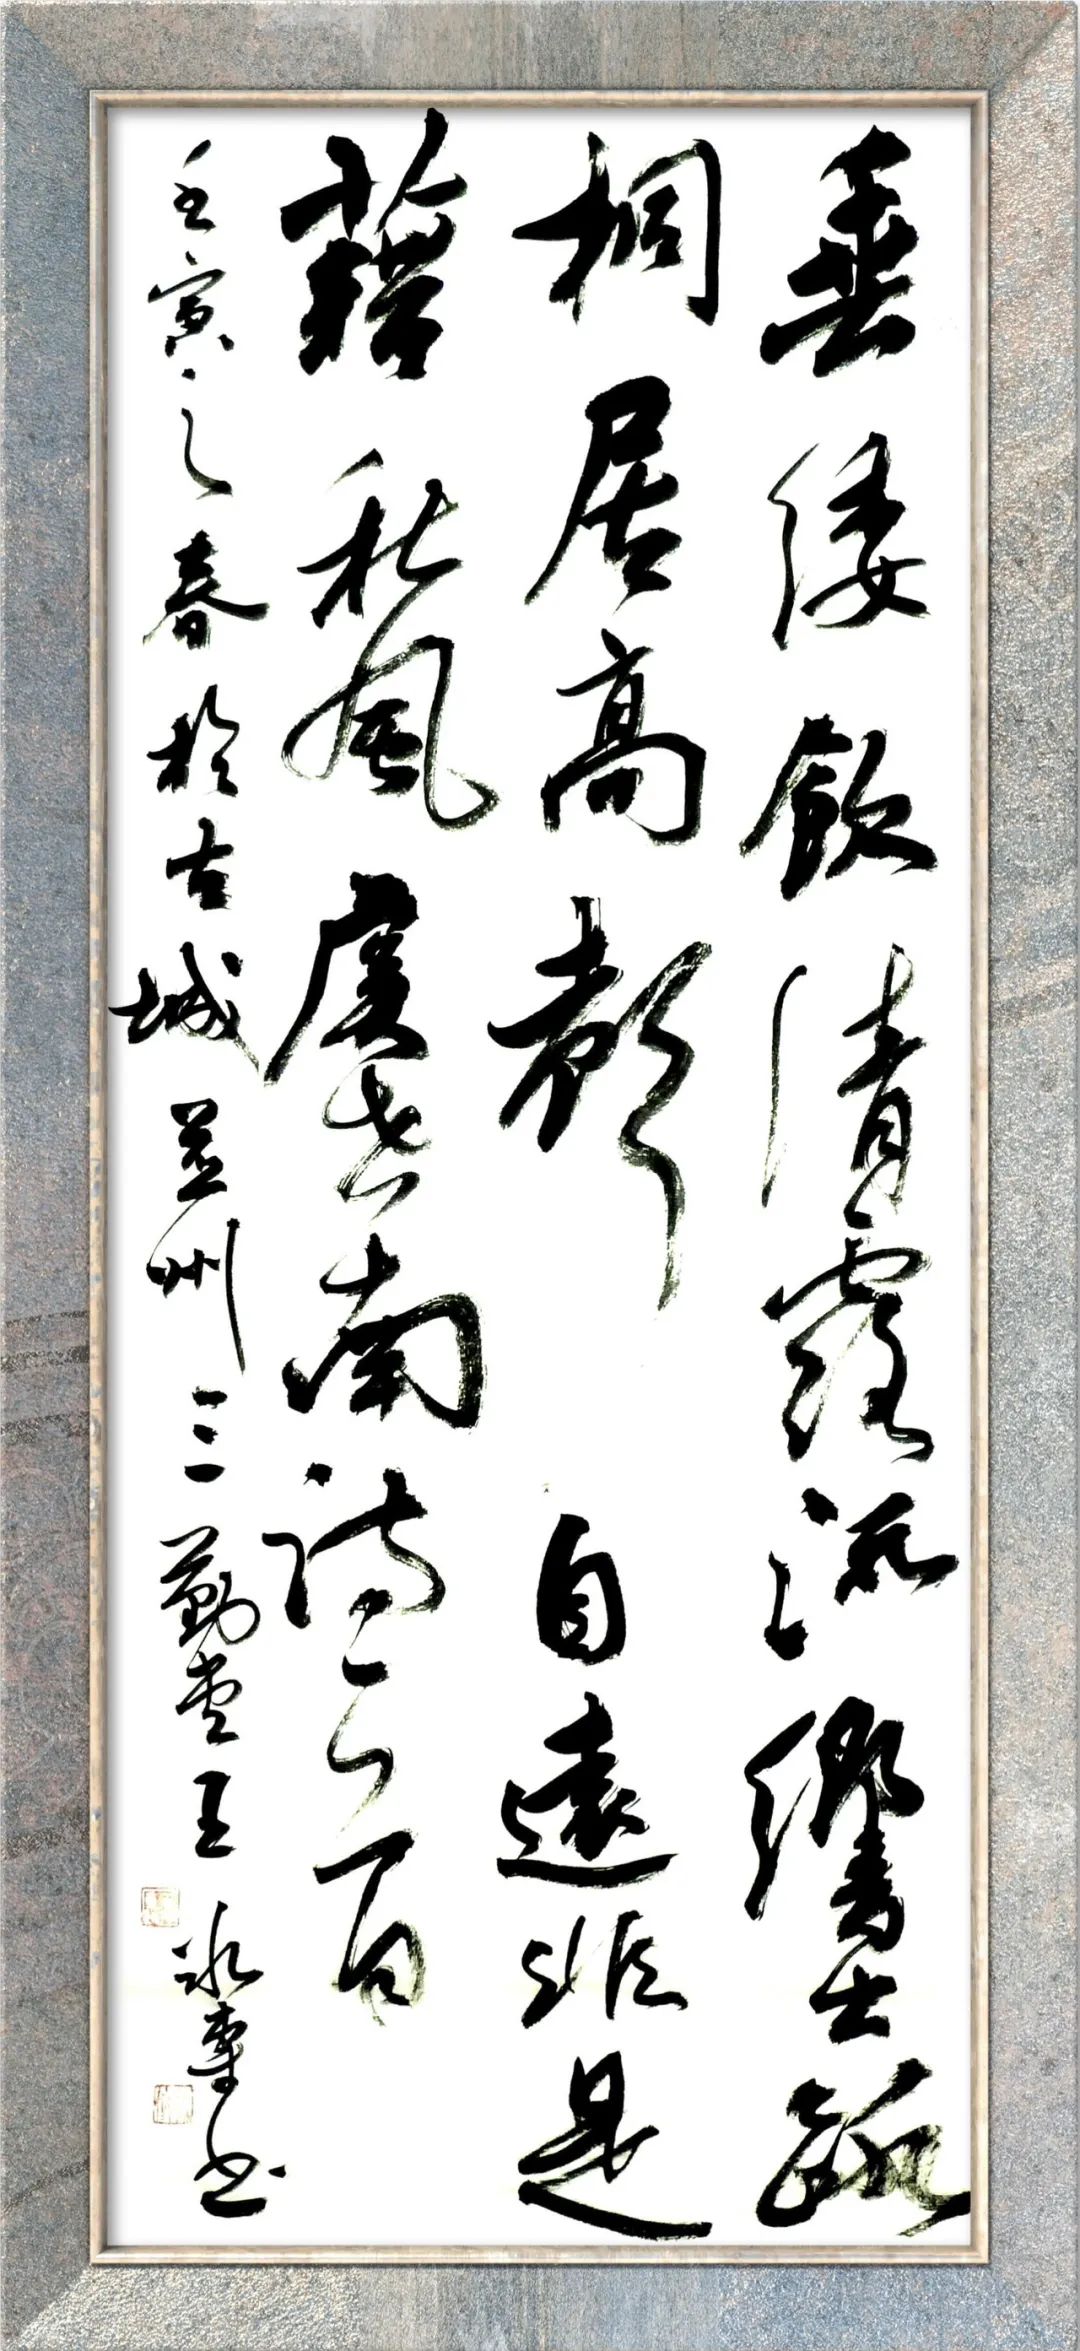 垂緌飲清露流響出疏
桐居高聲自遠非是
藉秋風虞世南詩一首
壬寅之春於古城並州三勤堂王书